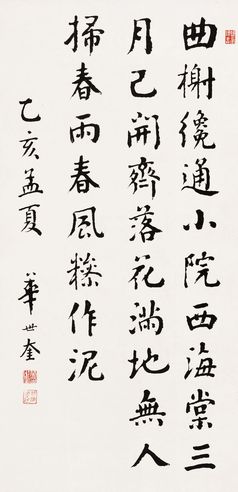 曲榭纔通小院西海棠三
月已開齊落花滿地無人
掃春雨春風糝作泥
乙亥孟夏 華世奎